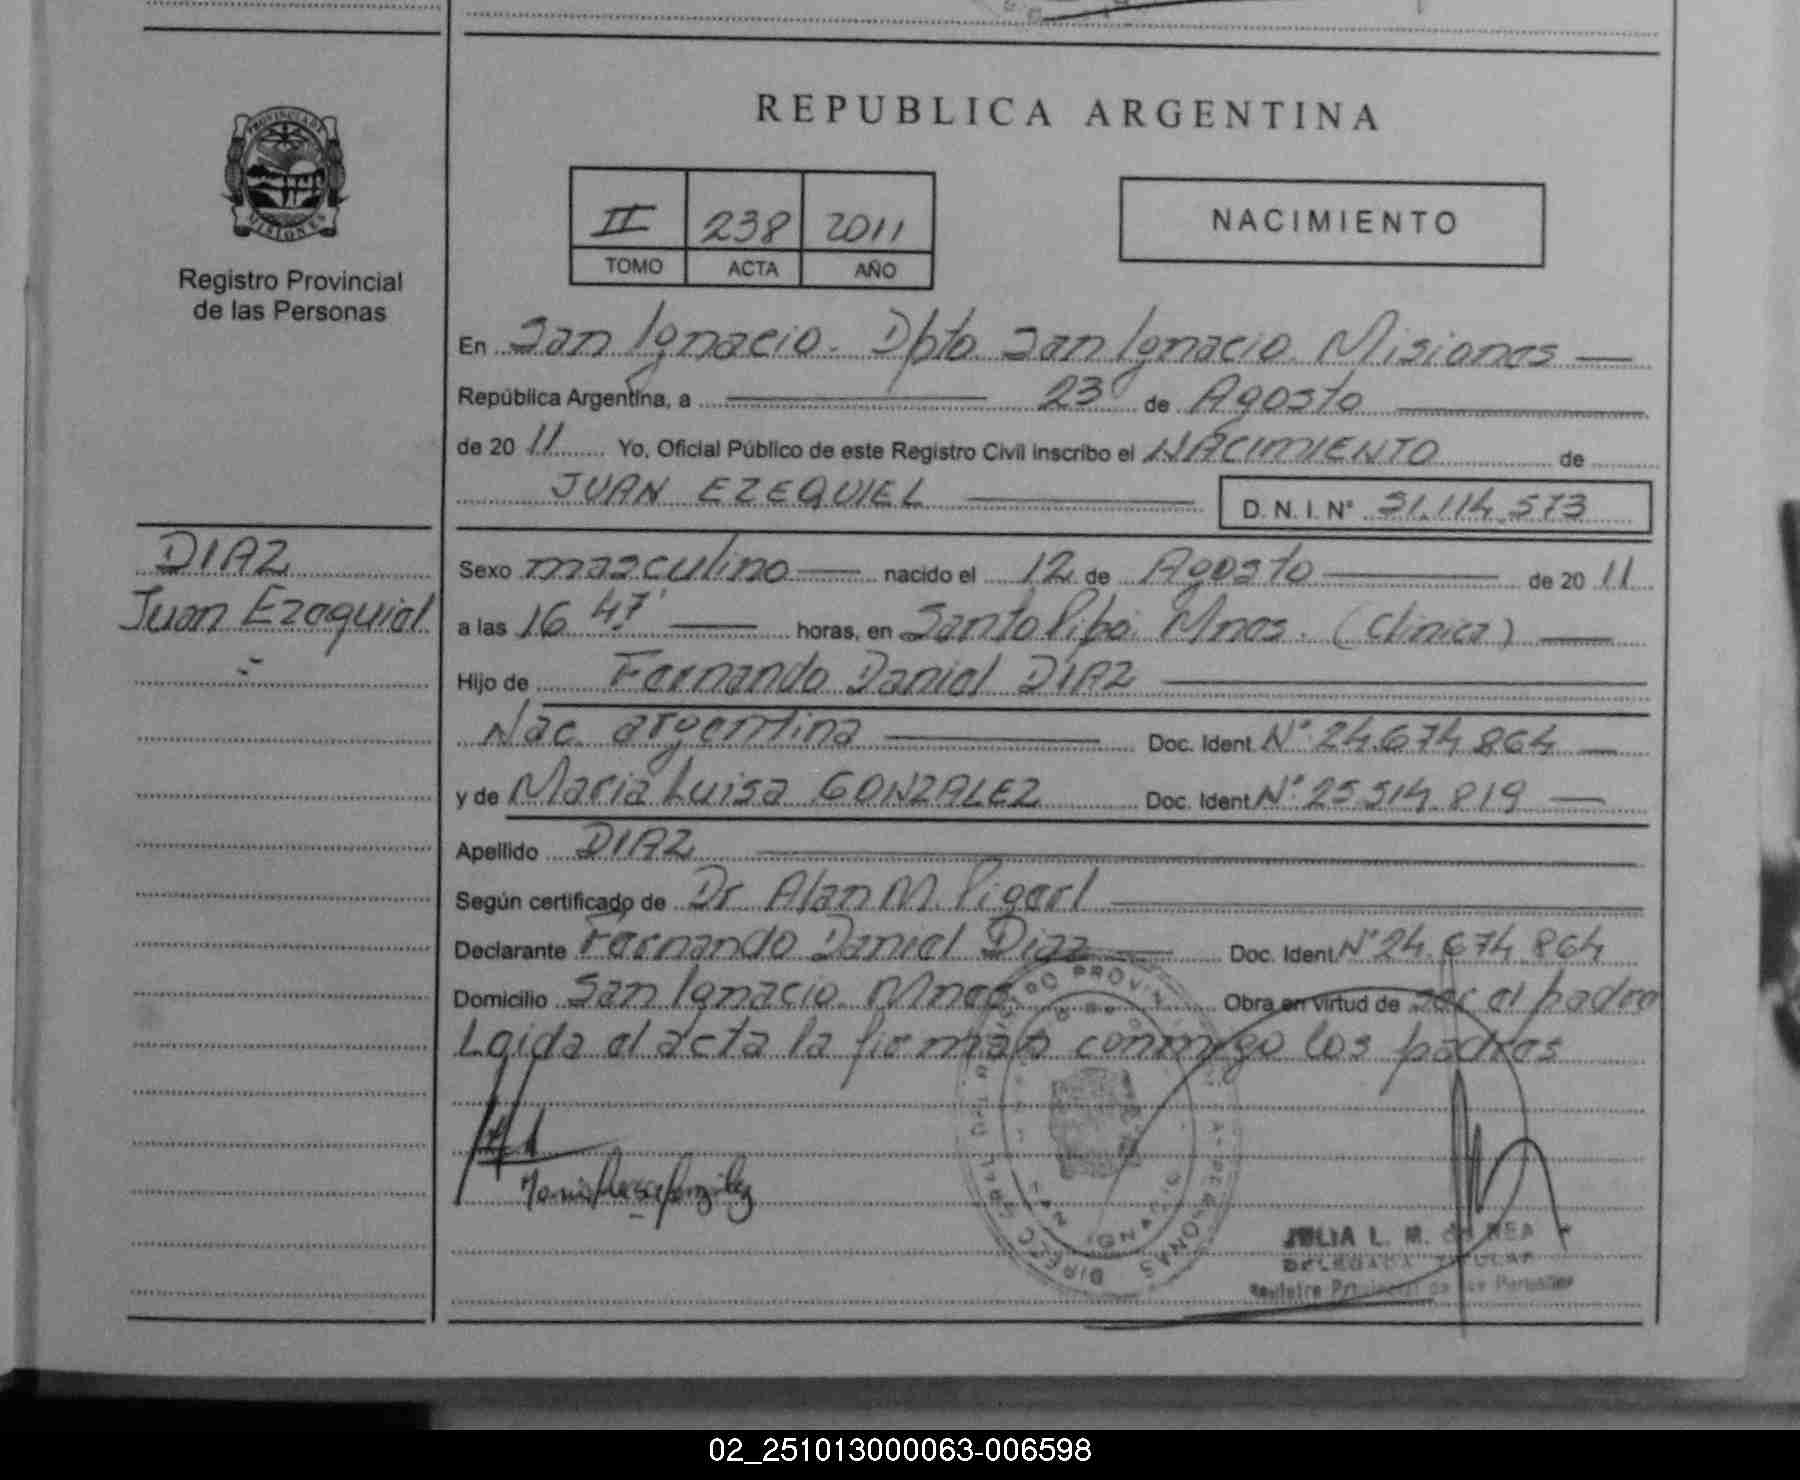 REPUBLICA ARGENTINA
PROVINCIA DE
MISIONES
Registro Provincial
de las Personas
II 238 2011
TOMO ACTA AÑO
NACIMIENTO
En San Ignacio. Dpto San Ignacio Misiones
República Argentina, a 23 de Agosto
de 20 11 Yo, Oficial Público de este Registro Civil inscribo el NACIMIENTO de
JUAN EZEQUIEL D. N. I. N° 51.114.573
DIAZ
Juan Ezequiel
Sexo masculino nacido el 12 de Agosto de 20 11
a las 16 47' horas, en Santo Pipó Mnes. (Clinica)
Hijo de Fernando Daniel DIAZ
Nac. argentina Doc. Ident. N° 24.674.864
y de Maria Luisa GONZALEZ Doc. Ident. N° 25.514.819
Apellido DIAZ
Según certificado de Dr. Alan M.
Declarante Fernando Daniel Diaz Doc. Ident. N° 24.674.864
Domicilio San Ignacio Mnes. Obra en virtud de ser el padre
Leida el acta la firman conmigo los padres
JULIA L. M. de REA
DELEGADA TITULAR
Registro Provincial de las Personas
02_251013000063-006598